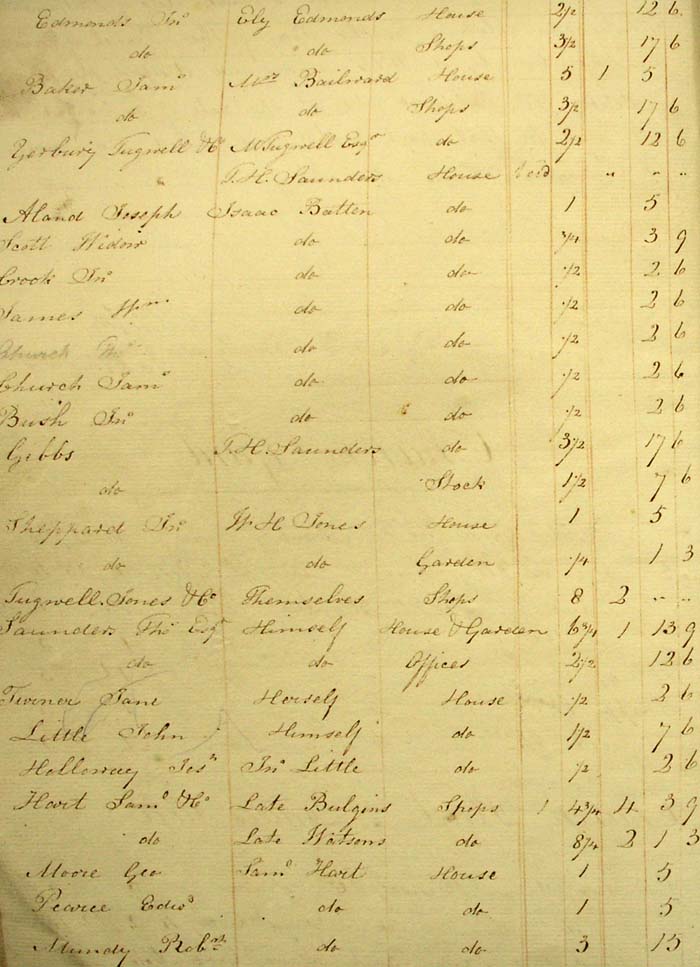 Edmonds Jnº Ely Edmonds House 2/2 12 6
do do Shops 3/2 17 6
Baker Samˡ Mrs Bailward House 5 1 5
do do Shops 3/2 17 6
Yerbury Tugwell & Cº M Tugwell Esqr do 2/2 12 6
T. H. Saunders House Void " " "
Aland Joseph Isaac Batten do 1 5
Scott Widow do do 3/4 3 9
Crook Jnº do do 1/2 2 6
James Wm do do 1/2 2 6
Church Thº do do 1/2 2 6
Church Samˡ do do 1/2 2 6
Bush Jnº do do 1/2 2 6
Gibbs T. H. Saunders do 3 1/2 17 6
do Stock 1 1/2 7 6
Sheppard Jnº W H Jones House 1 5
do do Garden 1/4 1 3
Tugwell Jones & Cº Themselves Shops 8 2 " "
Saunders Thº Esqr Himself House & Garden 6 3/4 1 13 9
do do Offices 2 1/2 12 6
Turner Jane Herself House 1/2 2 6
Little John Himself do 1 1/2 7 6
Holloway Josh Jnº Little do 1/2 2 6
Hart Samˡ & Cº Late Bulgins Shops 1 4 3/4 4 3 9
do Late Watsons do 8 1/4 2 1 3
Moore Geo Samˡ Hart House 1 5
Pearce Edwd do do 1 5
Mundy Robrt do do 3 15